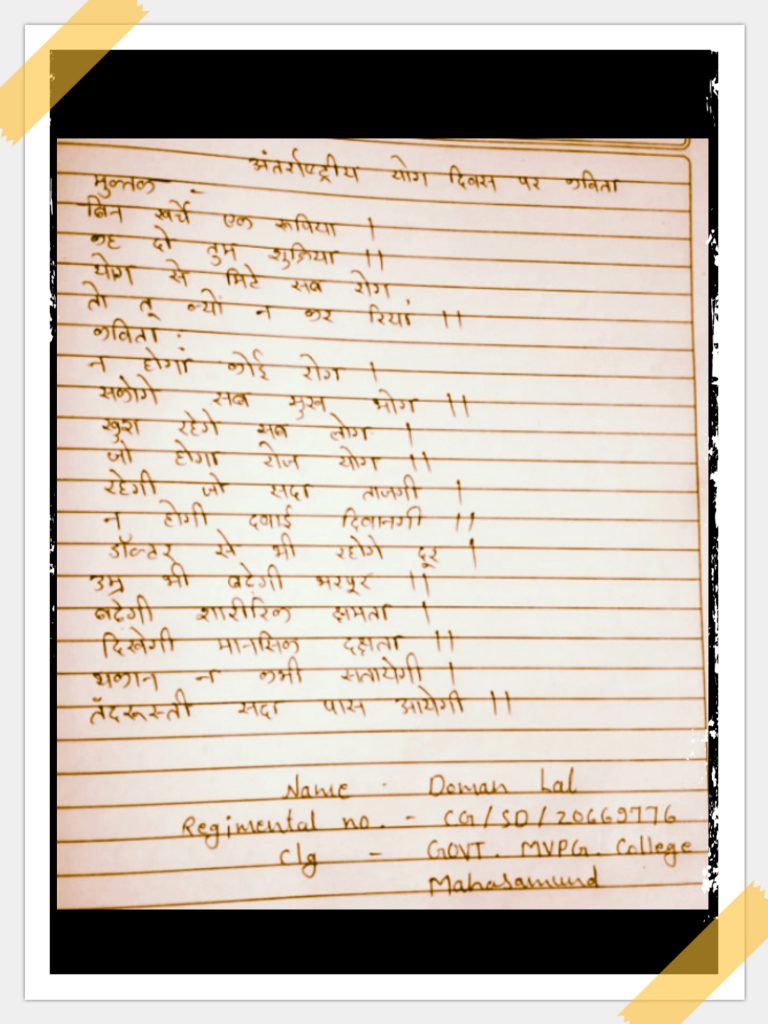 अंतर्राष्ट्रीय योग दिवस पर कविता
मुक्तक -
बिन खर्चे एक रूपिया ।
कह दो तुम शुक्रिया ।।
योग से मिटे सब रोग
तो तू क्यों न कर रियां ।।
कविता :
न होगां कोई रोग ।
सकोगे सब सुख भोग ।।
खुश रहेगे सब लोग ।
जो होगा रोज योग ।।
रहेगी जो सदा ताजगी ।
न होगी दवाई दिवानगी ।।
डॉक्टर से भी रहोगे दूर ।
उम्र भी बढ़ेगी भरपूर ।।
बढ़ेगी शारीरिक क्षमता ।
दिखेगी मानसिक दक्षता ।।
थकान न कभी सतायेगी ।
तंदरूस्ती सदा पास आयेगी ।।
Name - Doman Lal
Regimental no. - CG/SD/20669776
Clg - GOVT. MVPG. College
Mahasamund